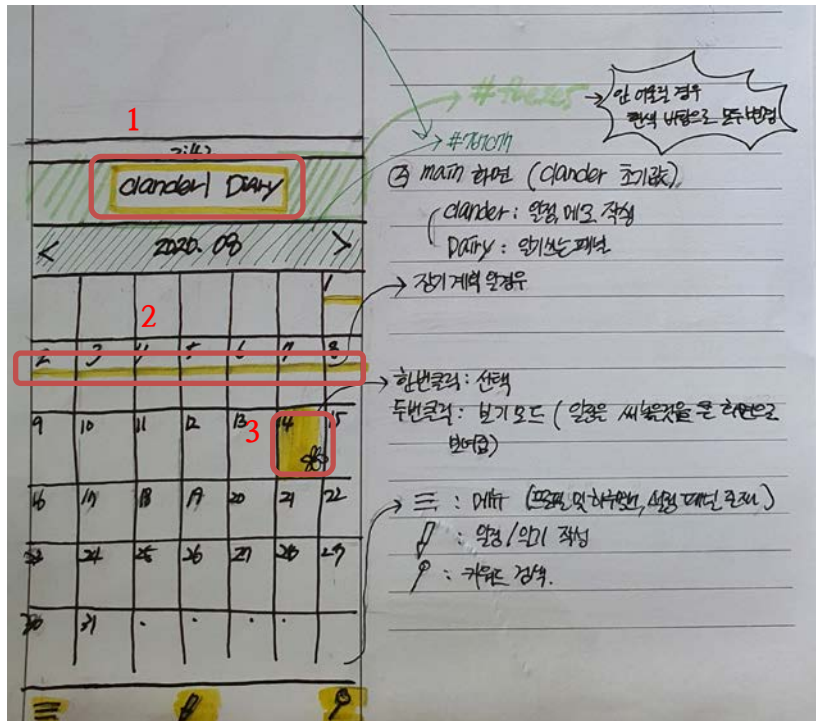 1
clander | Diary
< 2020. 08 >
1
2
2 3 4 5 6 7 8
9 10 11 12 13 14 15
3
16 17 18 19 20 21 22
23 24 25 26 27 28 29
30 31 . . . .
안 어울릴 경우
흰색 바탕으로 모두 변경
② main 화면 (clander 초기값)
clander : 일정, 메모 작성
Dairy : 일기쓰는 패널
장기계획 일경우
한번클릭 : 선택
두번클릭 : 보기 모드 ( 일정은 써놓은것을 큰 화면으로
보여줌)
☰ : 메뉴 (프로필 및 하루
: 일정/일기 작성
: 키워드 검색.